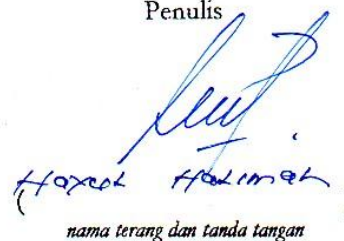 Penulis
Hayat Halimah
nama terang dan tanda tangan